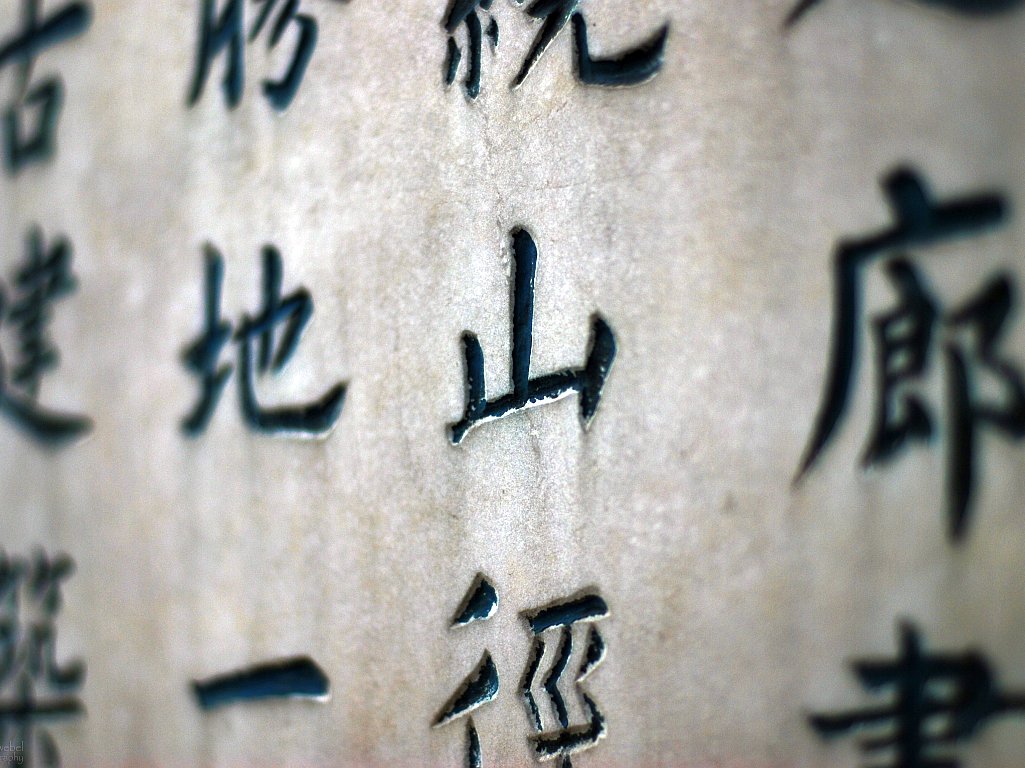 廊
山徑
勝地一
古建築